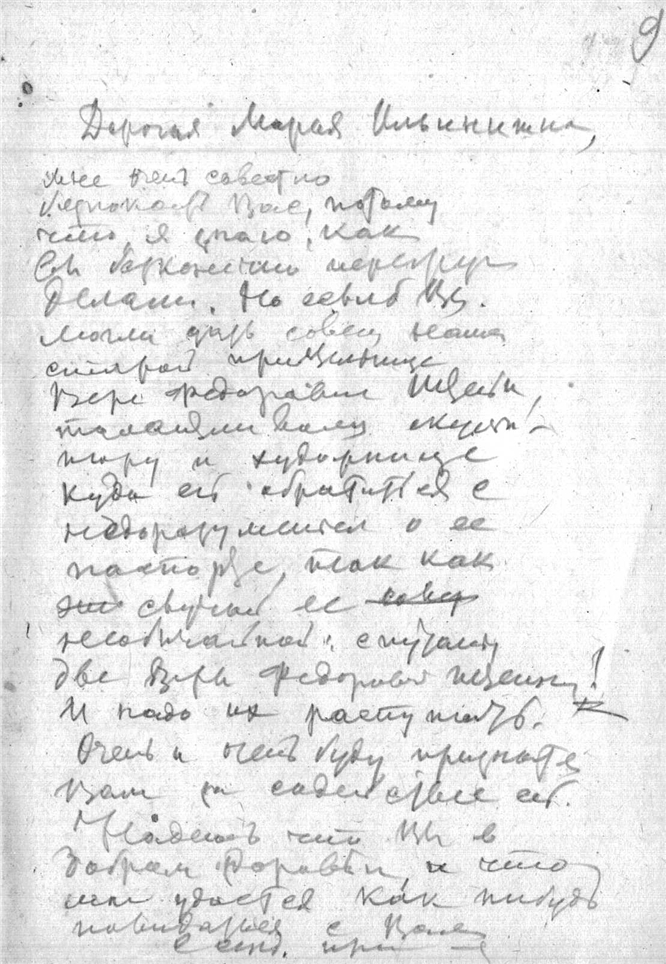 9
Дорогая Мария Ильинична,
мне очень совестно
беспокоить Вас, потому
что я знаю, как
Вы бесконечно
делами. Но если б Вы
могли дать совет нашей
старой приятельнице
Вере Федоровне
скульп-
тору и художнице
куда ей обратиться с
недоразумением о ее
паспорте, так как
случай ее
необычайный: спутаны
две Веры Федоровны
И надо их распутать.
Очень и очень буду признате
Вам за содействие ей.
Надеюсь что Вы в
добром здоровьи, и что
мне удастся как нибудь
повидаться с Вами